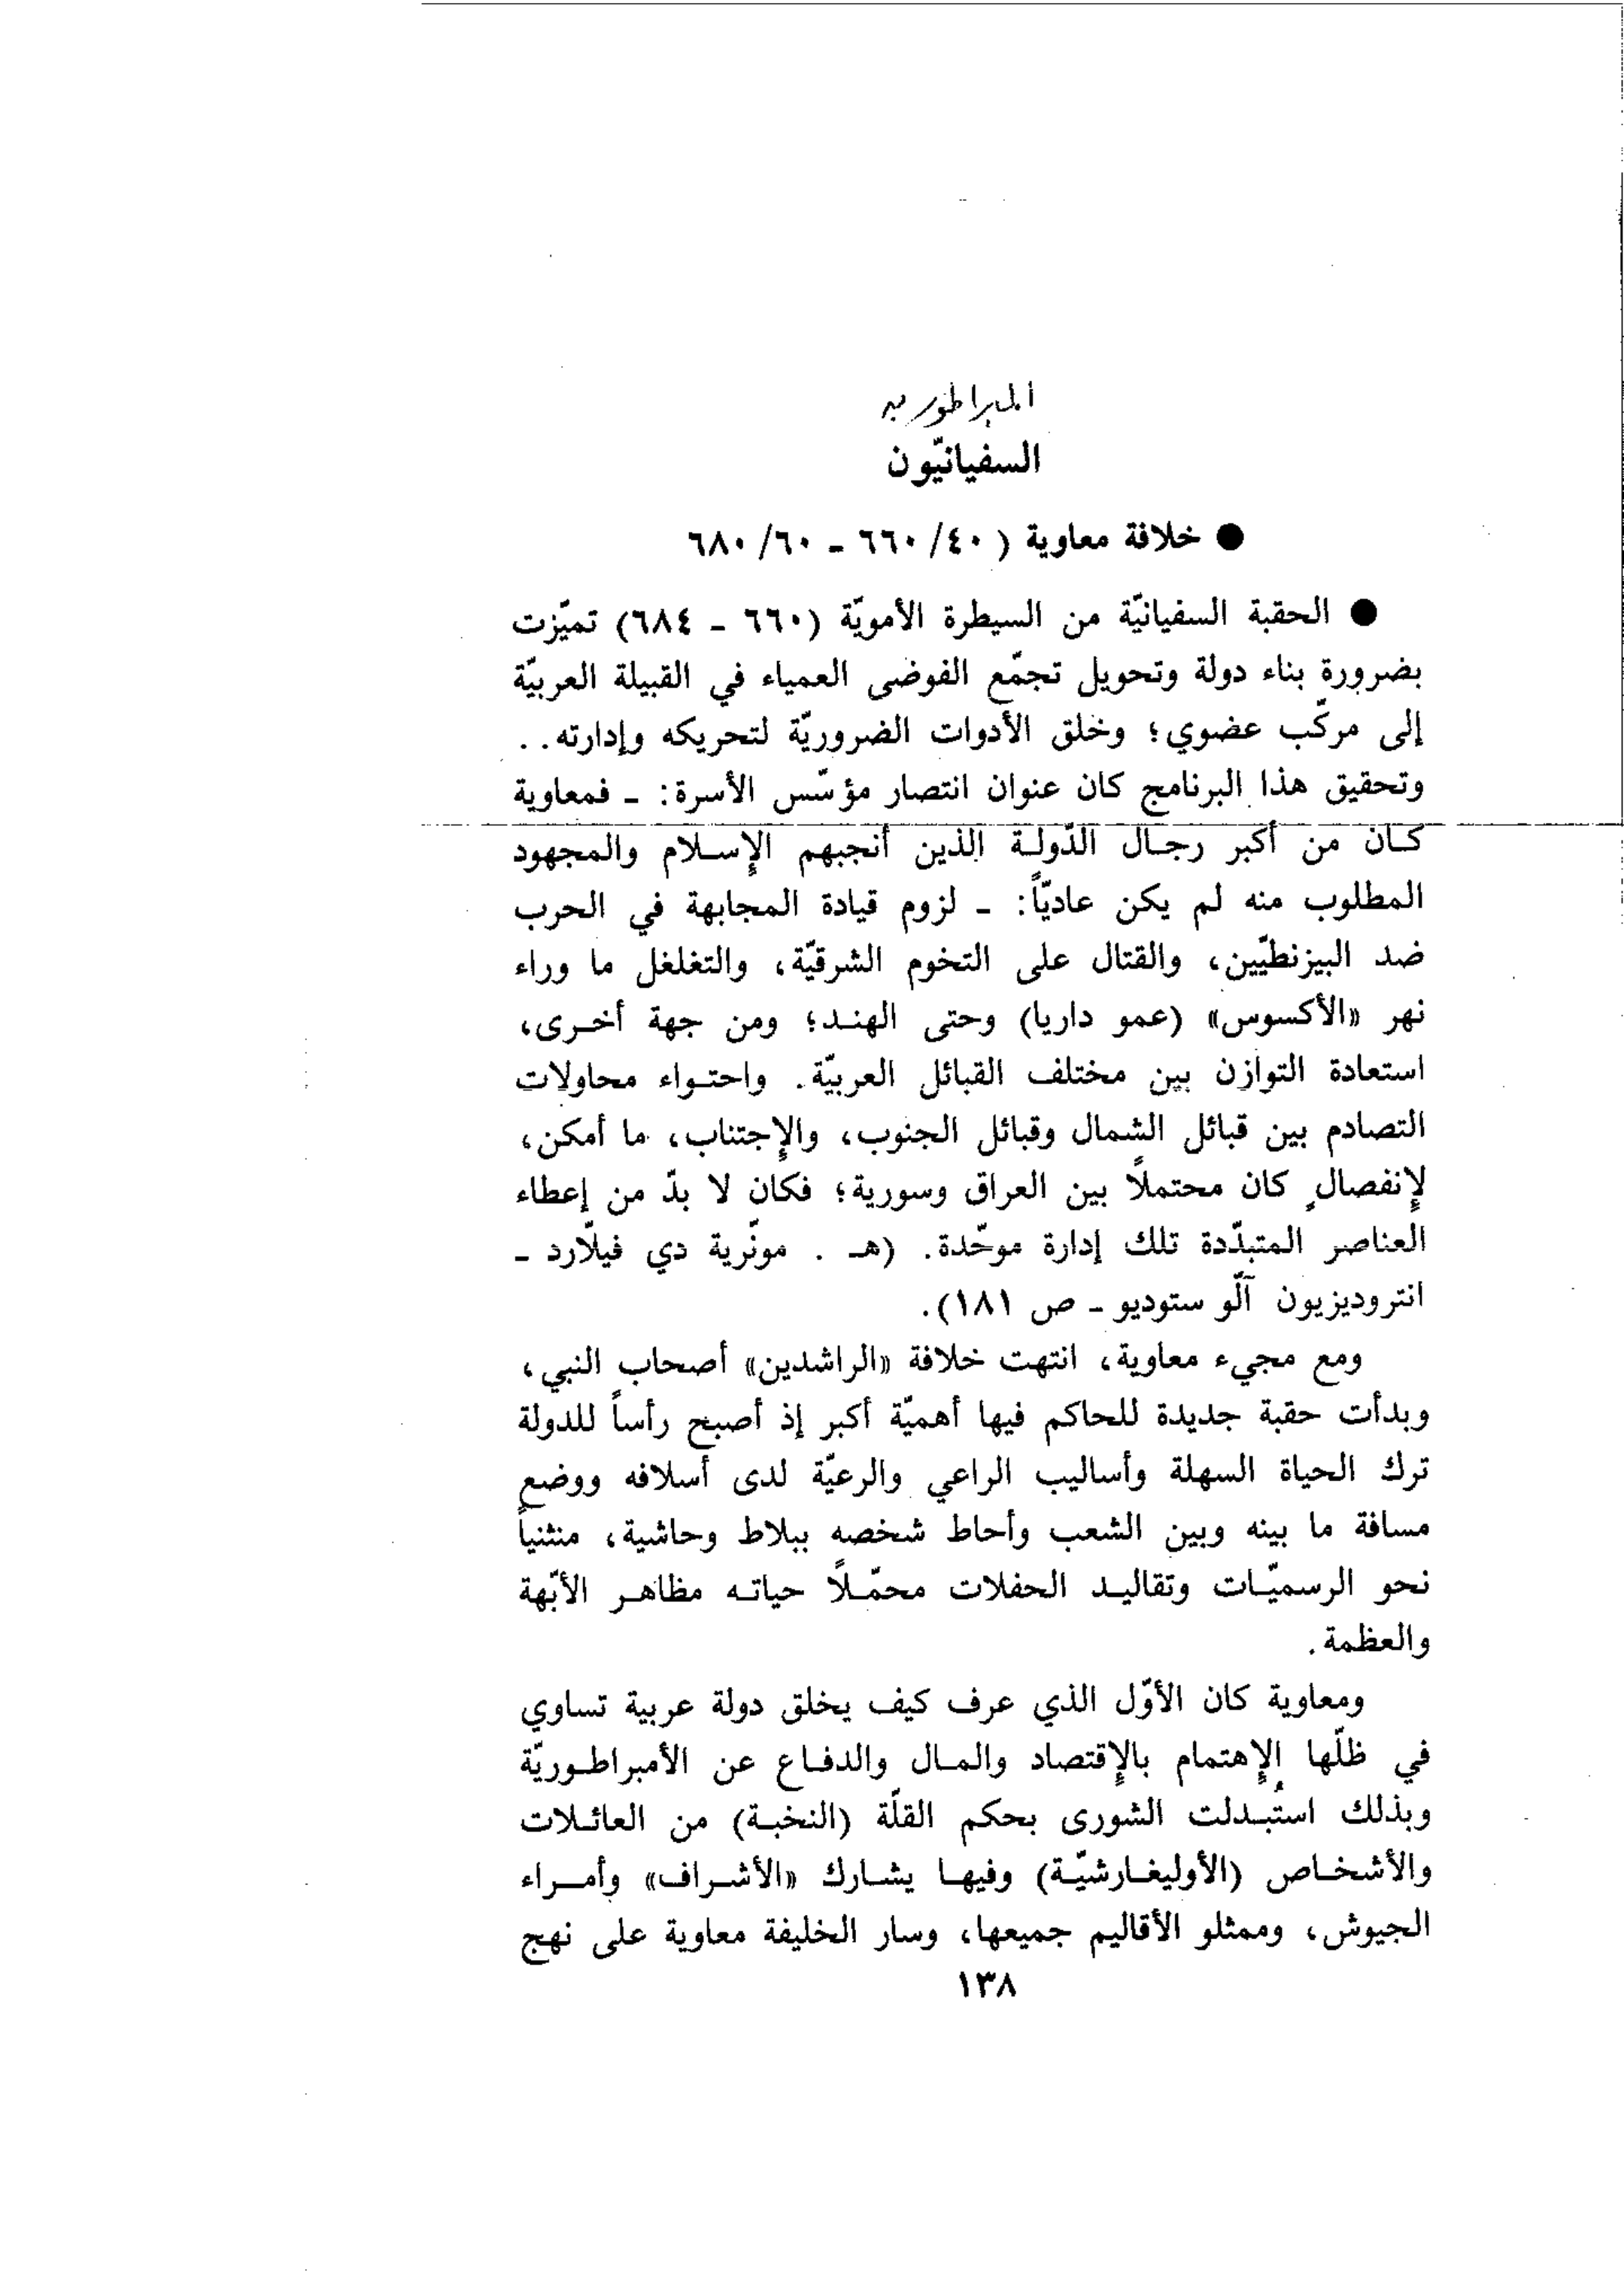 السفيانيّون
● خلافة معاوية ( ٤٠/ ٦٦٠ - ٦٠/ ٦٨٠
● الحقبة السفيانيّة من السيطرة الأمويّة (٦٦٠ - ٦٨٤) تميّزت
بضرورة بناء دولة وتحويل تجمّع الفوضى العمياء في القبيلة العربيّة
إلى مركّب عضوي؛ وخلق الأدوات الضروريّة لتحريكه وإدارته..
وتحقيق هذا البرنامج كان عنوان انتصار مؤسّس الأسرة: - فمعاوية
كـان من أكبر رجـال الدّولـة الذين أنجبهم الإسـلام والمجهود
المطلوب منه لم يكن عاديّاً: - لزوم قيادة المجابهة في الحرب
ضد البيزنطيّين، والقتال على التخوم الشرقيّة، والتغلغل ما وراء
نهر «الأكسوس» (عمو داريا) وحتى الهنـد؛ ومن جهة أخـرى،
استعادة التوازن بين مختلف القبائل العربيّة. واحتـواء محاولات
التصادم بين قبائل الشمال وقبائل الجنوب، والإجتناب، ما أمكن،
لإنفصالٍ كان محتملًا بين العراق وسورية؛ فكان لا بدّ من إعطاء
العناصر المتبدّدة تلك إدارة موحّدة. (هـ . مونّرية دي فيلّارد -
انتروديزيون آلّو ستوديو - ص ١٨١).
ومع مجيء معاوية، انتهت خلافة «الراشدين» أصحاب النبي،
وبدأت حقبة جديدة للحاكم فيها أهميّة أكبر إذ أصبح رأساً للدولة
ترك الحياة السهلة وأساليب الراعي والرعيّة لدى أسلافه ووضع
مسافة ما بينه وبين الشعب وأحاط شخصه ببلاط وحاشية، منثنياً
نحو الرسميّـات وتقاليـد الحفلات محمّـلًا حياتـه مظاهـر الأبّهة
والعظمة.
ومعاوية كان الأوّل الذي عرف كيف يخلق دولة عربية تساوي
في ظلّها الإهتمام بالإقتصاد والمـال والدفـاع عن الأمبراطـوريّة
وبذلك استُبـدلت الشورى بحكم القلّة (النخبـة) من العائـلات
والأشخـاص (الأوليغـارشيّـة) وفيهـا يشـارك «الأشـراف» وأمـراء
الجيوش، وممثلو الأقاليم جميعها، وسار الخليفة معاوية على نهج
١٣٨